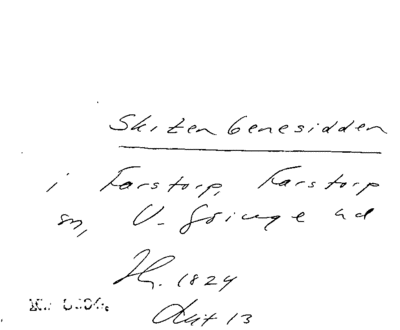 Skitenbenesidden
i Farstorp, Farstorp
sn, V. Göinge hd
1824
Avt 13